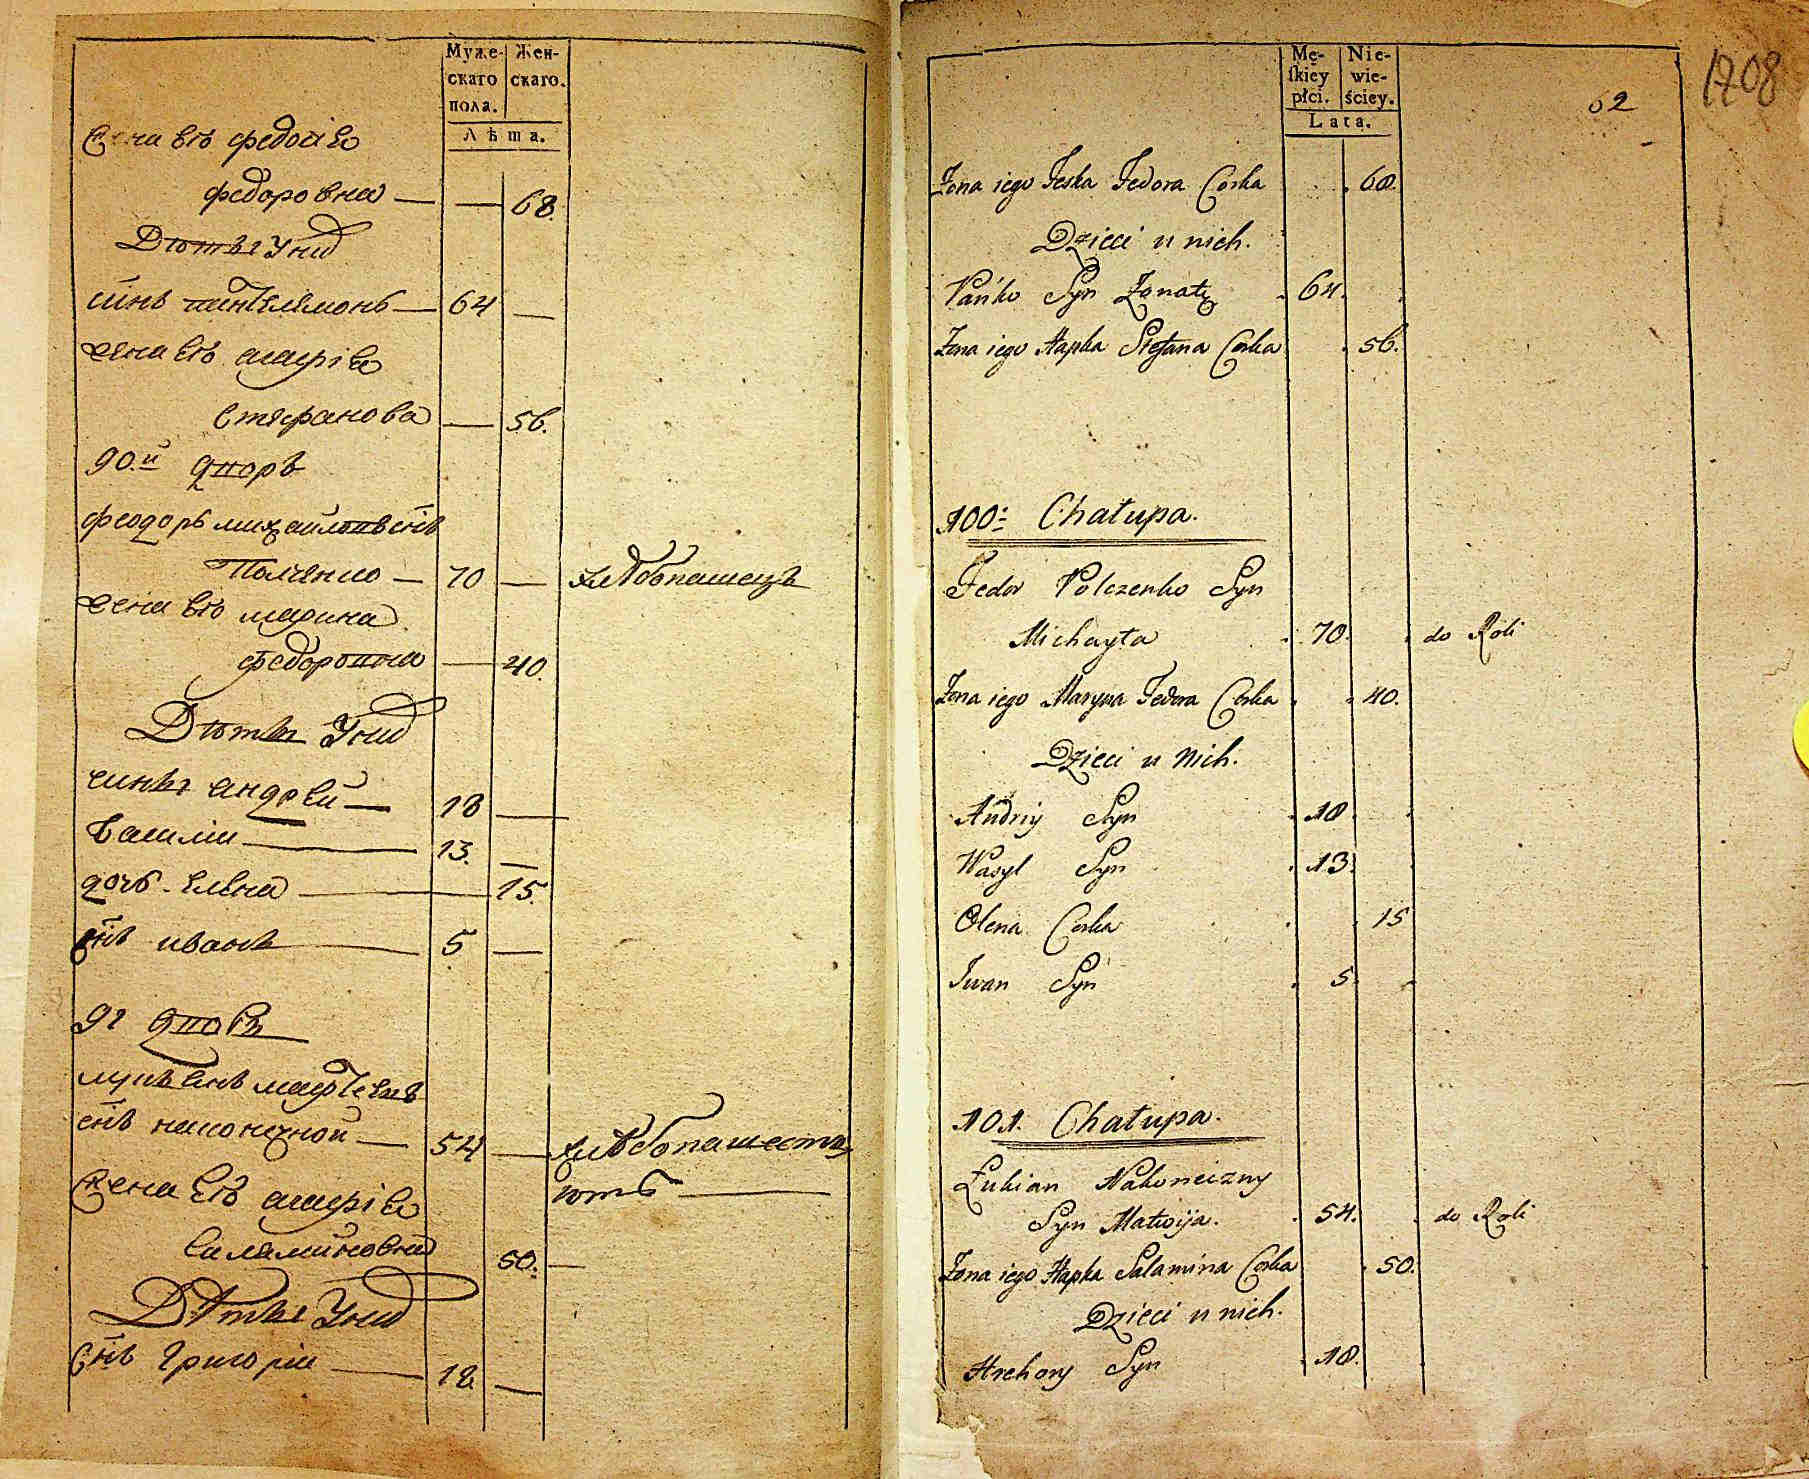 Муже-
скаго
пола.
Жен-
скаго.
Лѣта.
Жена его Федосіѧ
Федоровна — — 68.
Дѣти у них
синъ Пантелемонъ — 64 —
жена его Агафіѧ
Стефанова — 56.
90.й дворъ
Феодоръ Михайловъ снъ
Полченко — 70 — хлѣбопашецъ
жена его Марина
Федоровна — 40.
Дѣти у них
сины Андрей — 18 —
Василій — 13. —
дочь Елена — 15.
снъ Иванъ — 5 —
91 дворъ
снъ Наконечной — 54 — хлѣбопашест
жена его Агафіѧ
50. —
Дѣти у них
Снъ Григорій — 18. —
Mę-
skiey
płci.
Nie-
wie-
ściey.
Lata.
1708
62
Żona iego Feska Fedora Corka 68.
Dzieci u nich.
Pańko Syn Żonaty 64.
Żona iego Hapka Stefana Corka 56.
100: Chałupa.
Fedor Polczenko Syn
Michayła 70. do Roli
Żona iego Maryna Fedora Corka 40.
Dzieci u nich.
Andriy Syn 18
Wasyl Syn 13.
Olena Corka 15
Iwan Syn 5.
101. Chałupa.
Łukian Nakoneczny
Syn Matwija. 54. do Roli
Żona iego Hapka Salamina Corka 50.
Dzieci u nich.
Hrehory Syn 18.